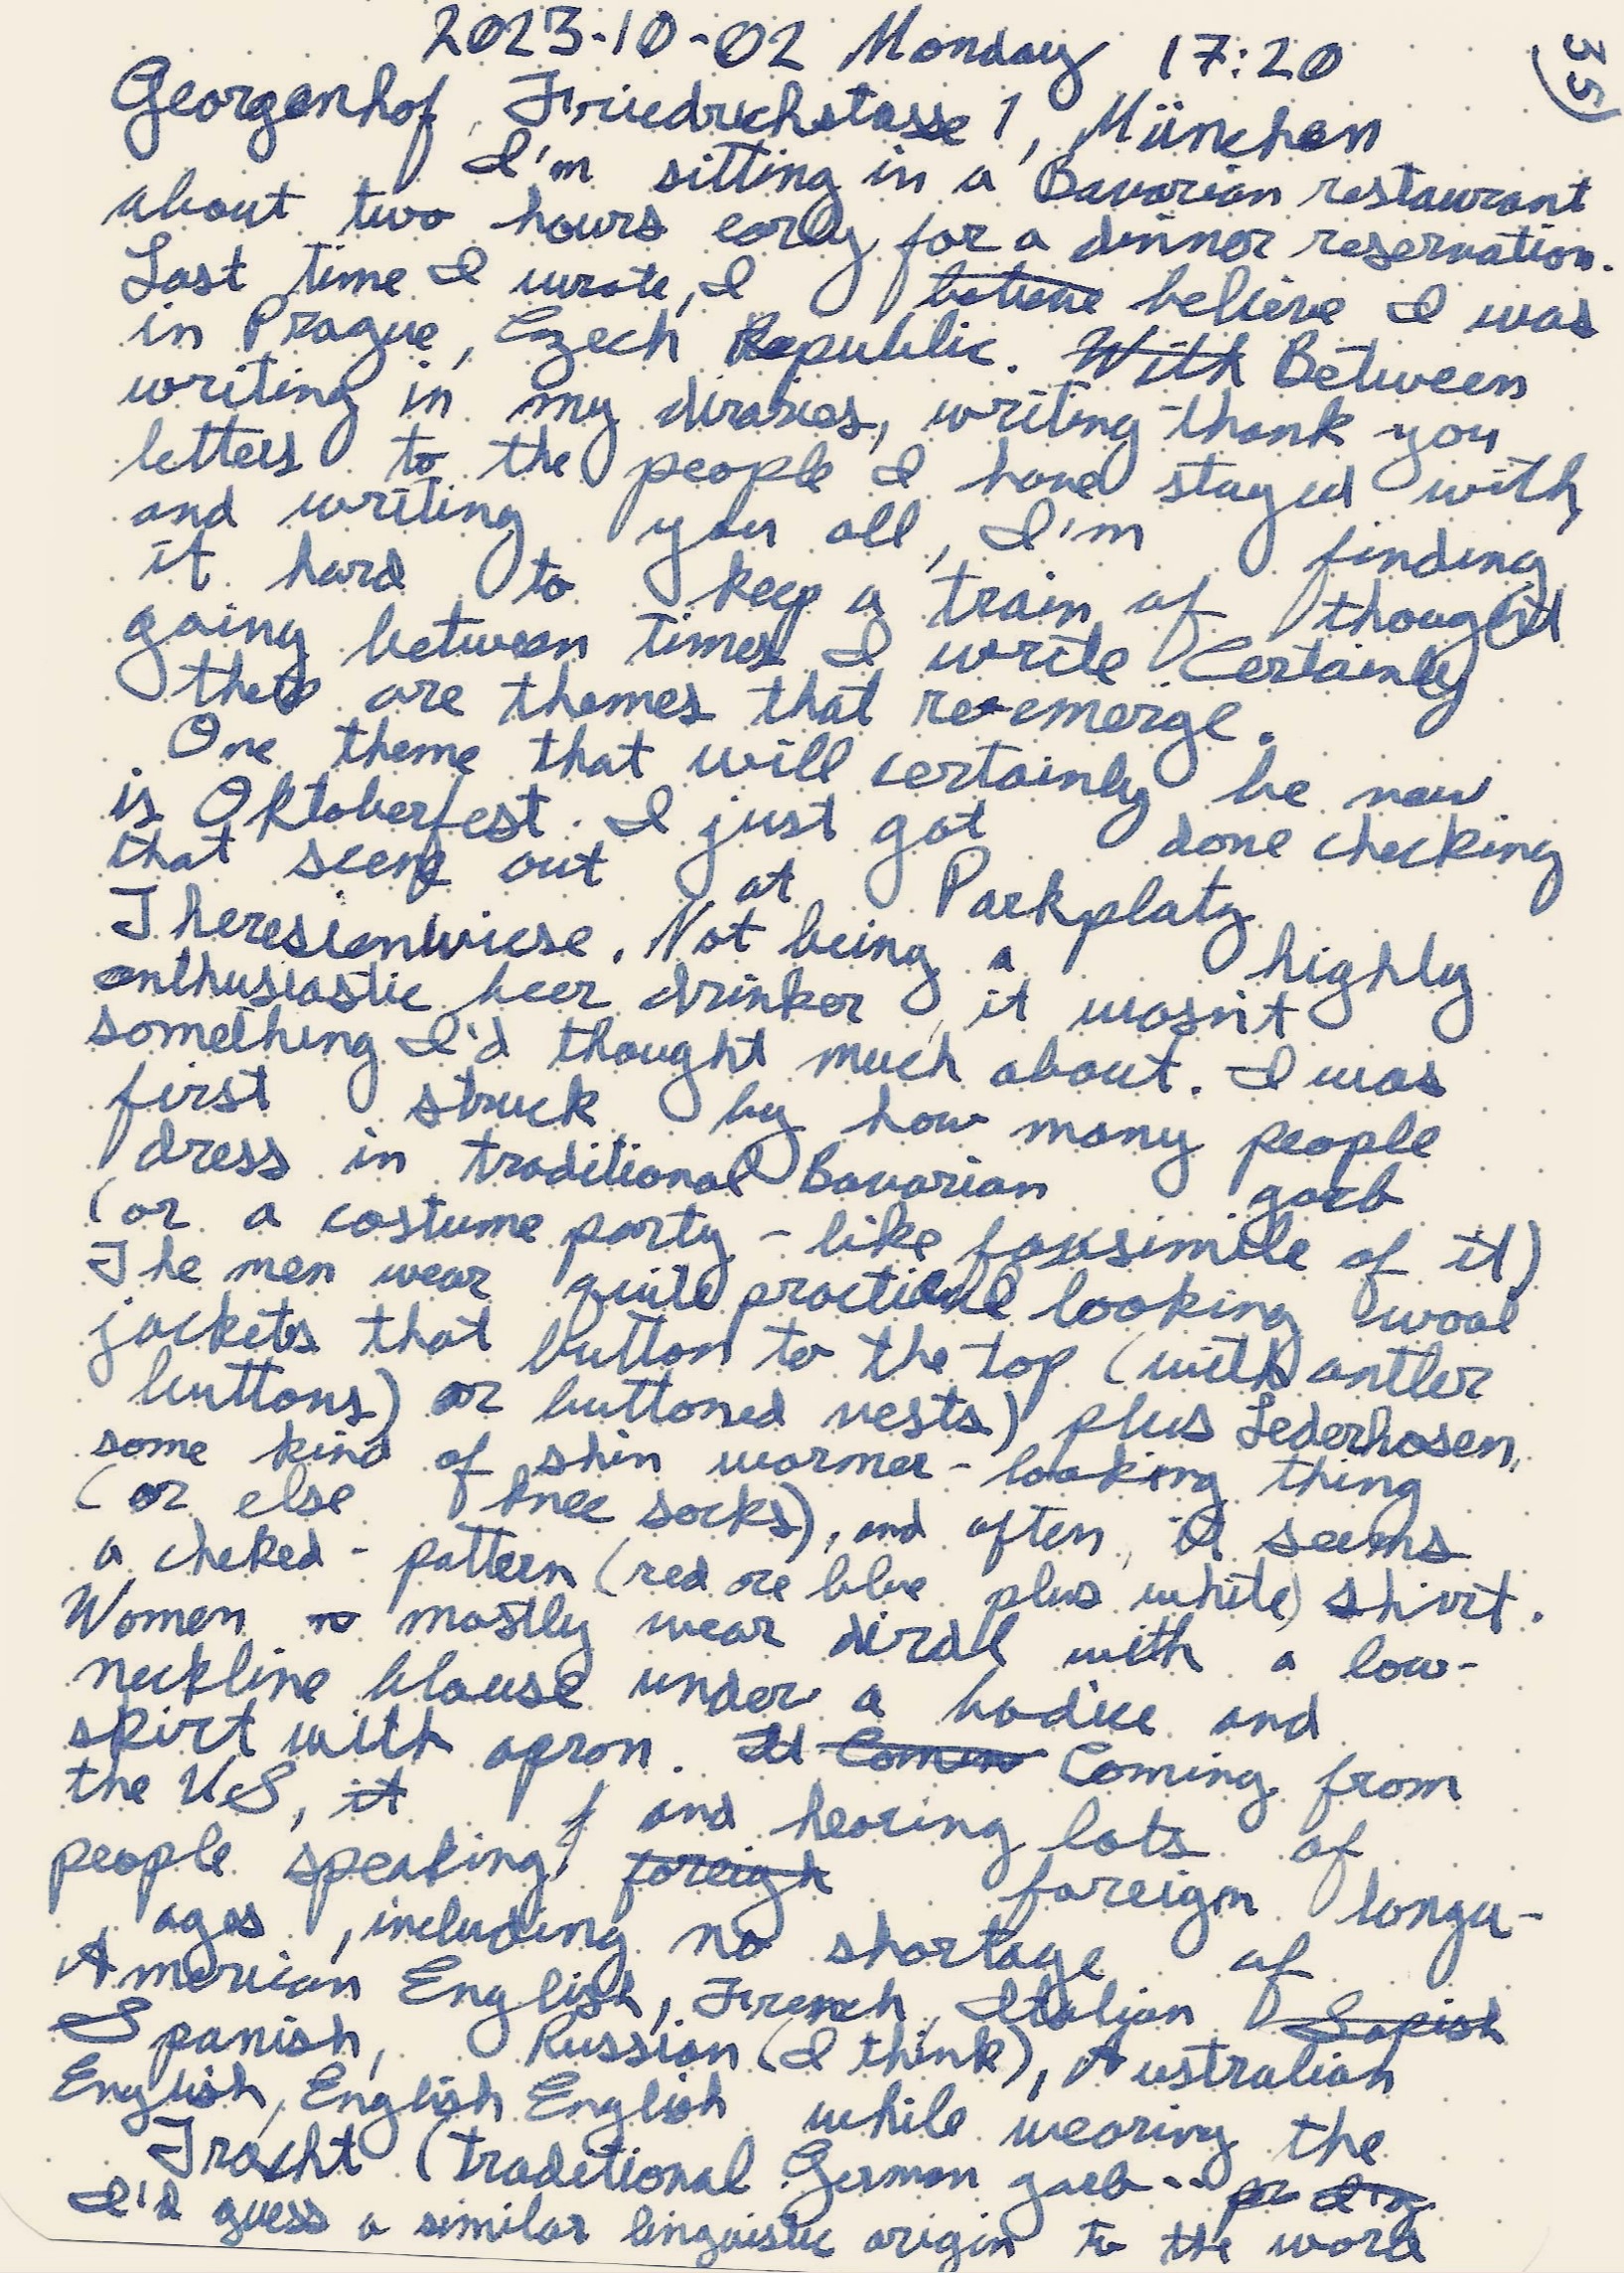 2023-10-02 Monday 17:20
35
Georgenhof, Friedrichstasse 1, München
I'm sitting in a Bavarian restaurant
about two hours early for a dinner reservation.
Last time I wrote, I believe I was
in Prague, Czech Republic. With Between
writing in my diraries, writing thank you
letters to the people I have stayed with,
and writing you all, I'm finding
it hard to keep a train of thought
going between times I write. Certainly
there are themes that re-emerge.
One theme that will certainly be new
is Oktoberfest. I just got done checking
that scene out at Parkplatz
Theresienwiese. Not being a highly
enthusiastic beer drinker, it wasn't
something I'd thought much about. I was
first struck by how many people
dress in traditional Bavarian garb
(or a costume party-like faxsimile of it)
The men wear quite practical looking wool
jackets that button to the top (with antler
buttons) or buttoned vests) plus Lederhosen,
some kind of shin warmer-looking thing
(or else knee socks), and often, it seems
a cheked-pattern (red ore blue plus white) shirt.
Women mostly wear dirdl with a low-
neckline blouse under a bodice and
skirt with apron. It Comin Coming from
the US, it and hearing lots of
people speaking foreign foreign langu-
ages, including no shortage of
American English, French, Italian Sapish
Spanish, Russian (I think), Australian
English, English English while wearing the
Tracht (traditional German garb --
I'd guess a similar linguistic origin to the word